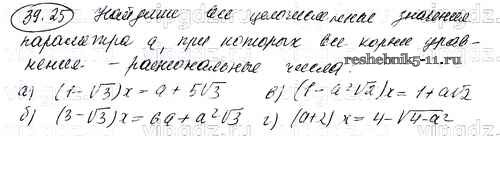 39.25 Найдите все целочисленные значения
параметра a, при которых все корни урав-
нения – рациональные числа:
reshebnik5-11.ru
а) (1-√3)x = a + 5√3 в) (1-a²√2)x = 1+a√2
б) (3-√3)x = 6a + a²√3 г) (a+2)x = 4-√4-a²